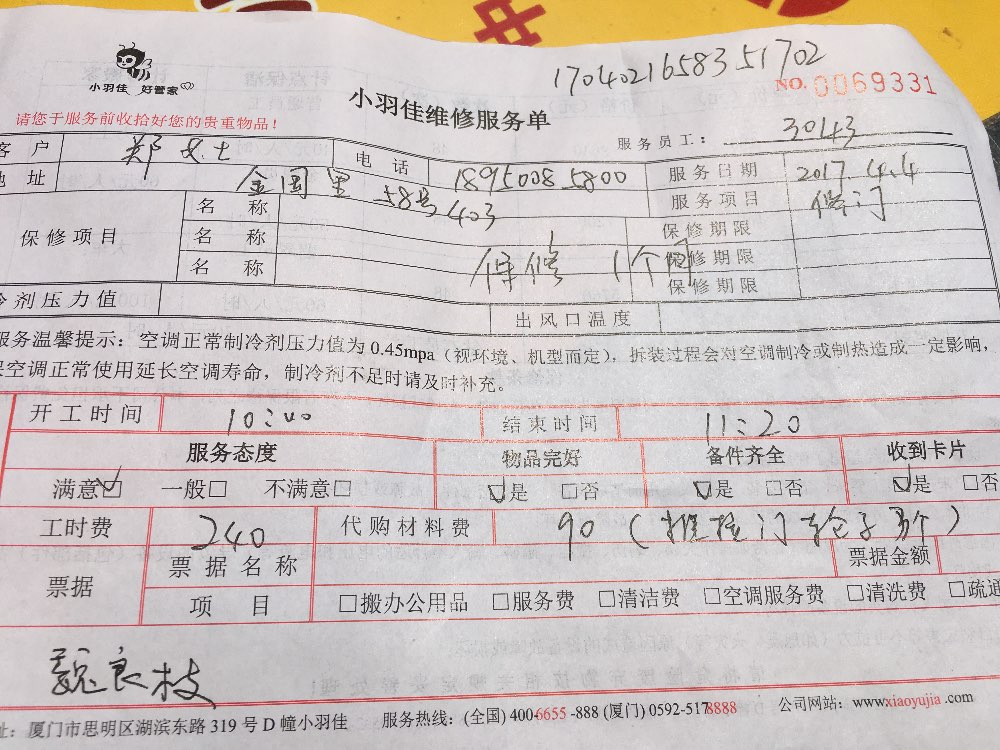 小羽佳 好管家
17040216583 51702
NO. 0069331
请您于服务前收拾好您的贵重物品！
小羽佳维修服务单
服务员工： 30143
客 户 郑女士 电 话 18950085800 服务日期 2017.4.4
地 址 金国里 58号403 服务项目 修门
保修项目 名 称 保修期限
名 称 保修期限
名 称 保修 1个月 保修期限
保修期限
冷剂压力值 出风口温度
服务温馨提示：空调正常制冷剂压力值为 0.45mpa（视环境、机型而定），拆装过程会对空调制冷或制热造成一定影响，
空调正常使用延长空调寿命，制冷剂不足时请及时补充。
开工时间 10:40 结束时间 11:20
服务态度 物品完好 备件齐全 收到卡片
满意☑ 一般□ 不满意□ ☑是 □否 ☑是 □否 ☑是 □否
工时费 240 代购材料费 90（推拉门轮子
票据 票据名称 票据金额
项 目 □搬办公用品 □服务费 □清洁费 □空调服务费 □清洗费 □疏通
魏良枝
址：厦门市思明区湖滨东路 319 号 D 幢小羽佳 服务热线：(全国) 400-6655 -888 (厦门) 0592-5178888 公司网站：www.xiaoyujia .com